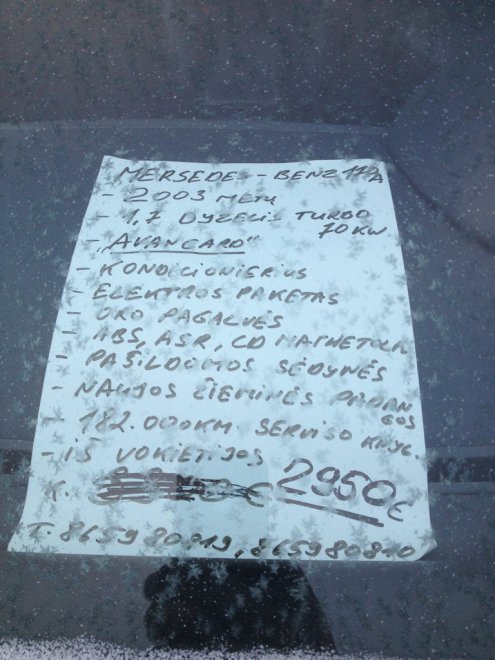 MERSEDES-BENZ 170 A
- 2003 METŲ
- 1,7 DYZELIS TURBO
70 KW
- „AVANGARD"
- KONDICIONIERIUS
- ELEKTROS PAKETAS
- ORO PAGALVĖS
- ABS, ASR, CD MAGNETOLA
- PAŠILDOMOS SĖDYNĖS
- NAUJOS ŽIEMINĖS PADANGOS
- 182.000KM SERVISO KNYG.
- IŠ VOKIETIJOS
K. € 2950€
T. 865980819, 865980810